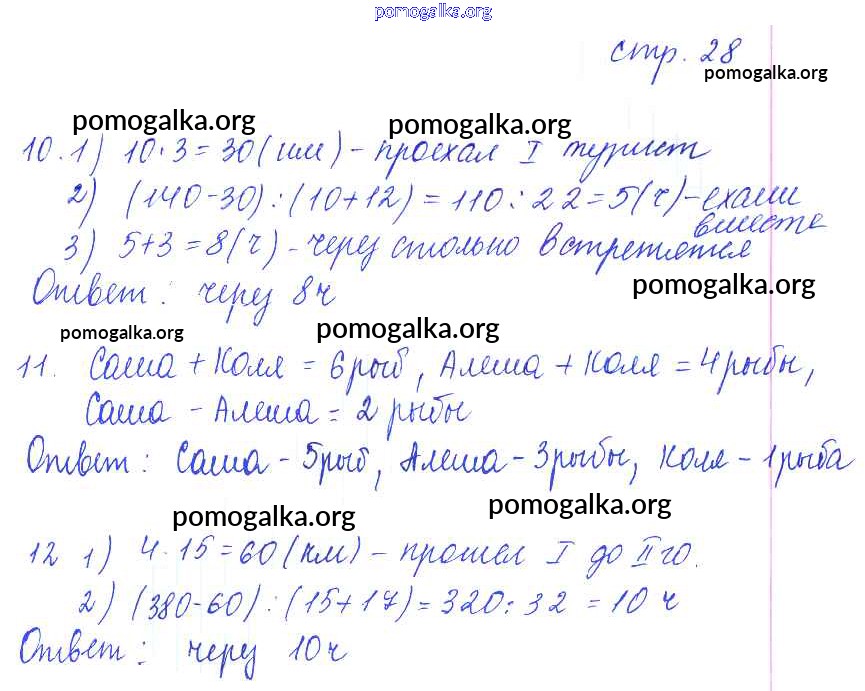 pomogalka.org
стр. 28
pomogalka.org
pomogalka.org pomogalka.org
10. 1) 10·3=30(км) - проехал I турист
2) (140-30):(10+12)=110:22=5(ч)-ехали
вместе
3) 5+3=8(ч) - через столько встретятся
Ответ: через 8ч
pomogalka.org
pomogalka.org pomogalka.org
11. Саша + Коля = 6 рыб, Алеша + Коля = 4 рыбы,
Саша - Алеша = 2 рыбы
Ответ: Саша - 5 рыб, Алеша - 3 рыбы, Коля - 1 рыба
pomogalka.org pomogalka.org
12 1) 4·15=60(км) - прошел I до II го.
2) (380-60):(15+17)=320:32=10 ч
Ответ: через 10ч